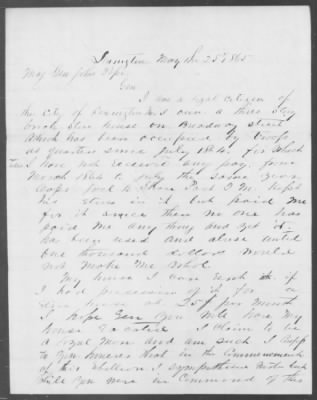 Lexington May 25th 1865
Maj Gen John Pope
Gen
I am a loyal citizen of
the City of Lexington I own a three story
brick store house on Broadway street
which has been occupied by troops
as quarters since July 1864. for which
I have not received any pay. from
March 1864 to July the same year
Post 2 M. kept
his stores in it but paid me
for it since then no one has
paid me any thing and yet it
has been used and abused until
one thousand dollars would
not make me whole.
My house I can rent it if
I had possession of it for a
store house at 25$ per month
I hope Gen you will have my
house vacated I claim to be
a loyal man and as such I appeal
to you
of this rebellion I sympathised with
while you were in command of this